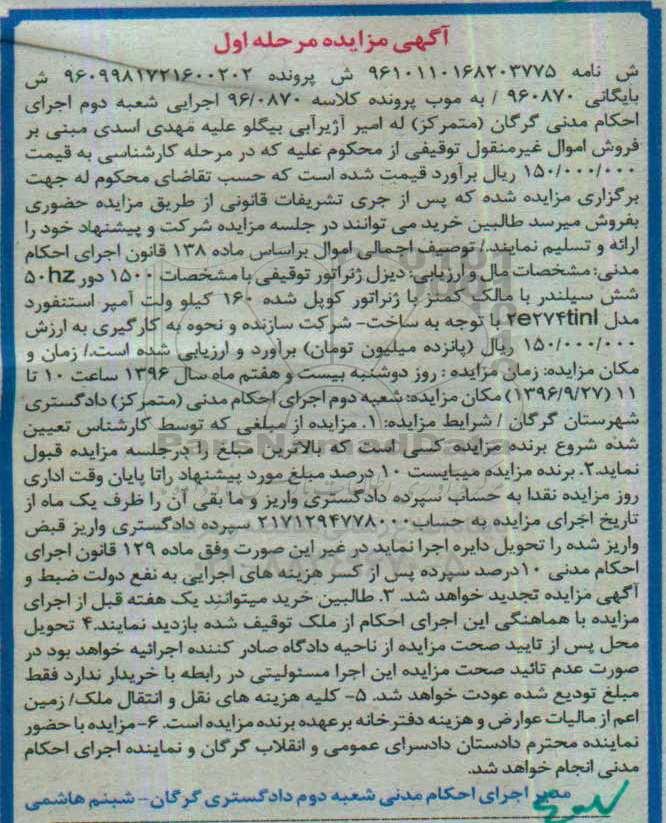 آگهی مزایده مرحله اول
ش نامه ۹۶۱۰۱۱۰۱۶۸۲۰۳۷۷۵ ش پرونده ۹۶۰۹۹۸۱۷۲۱۶۰۰۲۰۲ ش
بایگانی ۹۶۰۸۷۰ / به موب پرونده کلاسه ۹۶/۰۸۷۰ اجرایی شعبه دوم اجرای
احکام مدنی گرگان (متمرکز) له امیر آژیرآبی بیگلو علیه مهدی اسدی مبنی بر
فروش اموال غیرمنقول توقیفی از محکوم علیه که در مرحله کارشناسی به قیمت
۱۵۰/۰۰۰/۰۰۰ ریال برآورد قیمت شده است که حسب تقاضای محکوم له جهت
برگزاری مزایده شده که پس از جری تشریفات قانونی از طریق مزایده حضوری
بفروش میرسد طالبین خرید می توانند در جلسه مزایده شرکت و پیشنهاد خود را
ارائه و تسلیم نمایند./ توصیف اجمالی اموال براساس ماده ۱۳۸ قانون اجرای احکام
مدنی: مشخصات مال و ارزیابی: دیزل ژنراتور توقیفی با مشخصات ۱۵۰۰ دور ۵۰hz
شش سیلندر با مالک کمنز با ژنراتور کوپل شده ۱۶۰ کیلو ولت آمپر استنفورد
مدل ۲e۲۷۴tinl با توجه به ساخت- شرکت سازنده و نحوه به کارگیری به ارزش
۱۵۰/۰۰۰/۰۰۰ ریال (پانزده میلیون تومان) برآورد و ارزیابی شده است./ زمان و
مکان مزایده: زمان مزایده : روز دوشنبه بیست و هفتم ماه سال ۱۳۹۶ ساعت ۱۰ تا
۱۱ (۱۳۹۶/۹/۲۷) مکان مزایده: شعبه دوم اجرای احکام مدنی (متمرکز) دادگستری
شهرستان گرگان / شرایط مزایده: ۱. مزایده از مبلغی که توسط کارشناس تعیین
شده شروع برنده مزایده کسی است که بالاترین مبلغ را درجلسه مزایده قبول
نماید.۲. برنده مزایده میبایست ۱۰ درصد مبلغ مورد پیشنهاد راتا پایان وقت اداری
روز مزایده نقدا به حساب سپرده دادگستری واریز و ما بقی آن را ظرف یک ماه از
تاریخ اجرای مزایده به حساب ۲۱۷۱۲۹۴۷۷۸۰۰۰ سپرده دادگستری واریز قبض
واریز شده را تحویل دایره اجرا نماید در غیر این صورت وفق ماده ۱۲۹ قانون اجرای
احکام مدنی ۱۰درصد سپرده پس از کسر هزینه های اجرایی به نفع دولت ضبط و
آگهی مزایده تجدید خواهد شد. ۳. طالبین خرید میتوانند یک هفته قبل از اجرای
مزایده با هماهنگی این اجرای احکام از ملک توقیف شده بازدید نمایند.۴ تحویل
محل پس از تایید صحت مزایده از ناحیه دادگاه صادر کننده اجرائیه خواهد بود در
صورت عدم تائید صحت مزایده این اجرا مسئولیتی در رابطه با خریدار ندارد فقط
مبلغ تودیع شده عودت خواهد شد. ۵- کلیه هزینه های نقل و انتقال ملک/ زمین
اعم از مالیات عوارض و هزینه دفترخانه بر عهده برنده مزایده است. ۶- مزایده با حضور
نماینده محترم دادستان دادسرای عمومی و انقلاب گرگان و نماینده اجرای احکام
مدنی انجام خواهد شد.
مدیر اجرای احکام مدنی شعبه دوم دادگستری گرگان- شبنم هاشمی
ParsNamadData